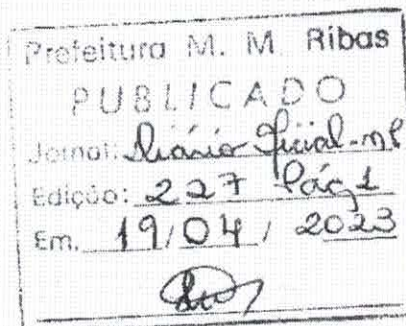 Prefeitura M. M. Ribas
PUBLICADO
Jornal: Diário Oficial-MR
Edição: 227 Pág 1
Em. 19/04/2023